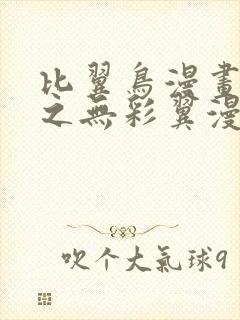 比翼鳥漫畫
之無彩翼漫
吹个大氣球9